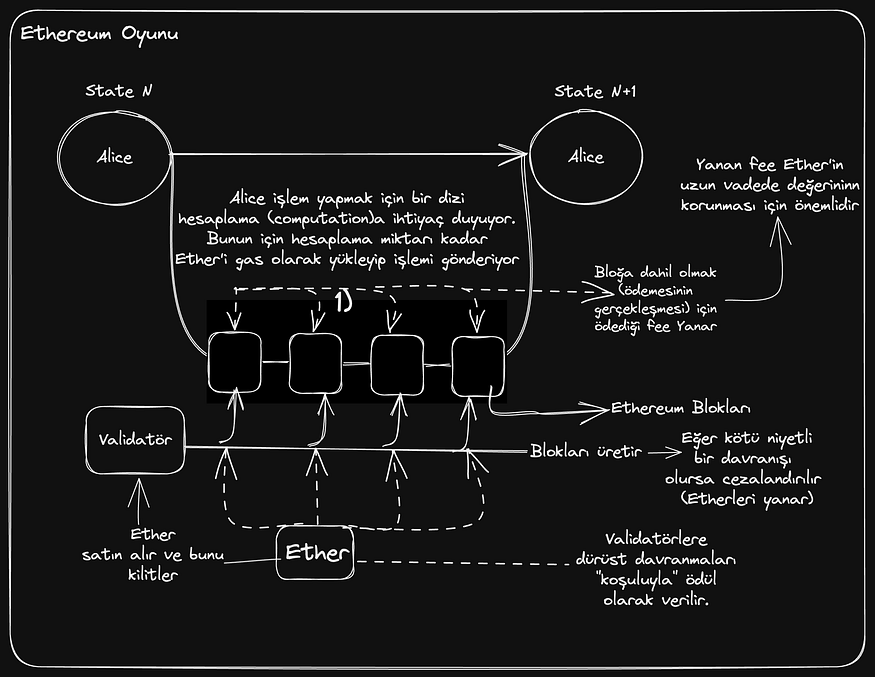 Ethereum Oyunu
State N
State N+1
Alice
Alice
Yanan fee Ether'in
uzun vadede değerininn
korunması için önemlidir
Alice işlem yapmak için bir dizi
hesaplama (computation)a ihtiyaç duyuyor.
Bunun için hesaplama miktarı kadar
Ether'i gas olarak yükleyip işlemi gönderiyor
Bloğa dahil olmak
(ödemesinin
gerçekleşmesi) için
ödediği fee Yanar
1)
Ethereum Blokları
Validatör
Blokları üretir
Eğer kötü niyetli
bir davranışı
olursa cezalandırılır
(Etherleri yanar)
Ether
satın alır ve bunu
kilitler
Ether
Validatörlere
dürüst davranmaları
"koşuluyla" ödül
olarak verilir.